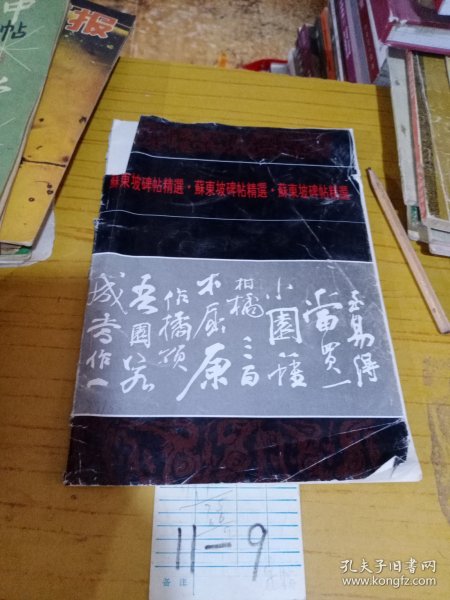 中
帖
报
蘇東坡碑帖精選・蘇東坡碑帖精選・蘇東坡碑帖精選
至易得
當買一
小園種
柑橘三百
本屈原
作橘頌
吾園若
成當作一
11-9
备注
孔夫子旧书网
www.kongfz.com